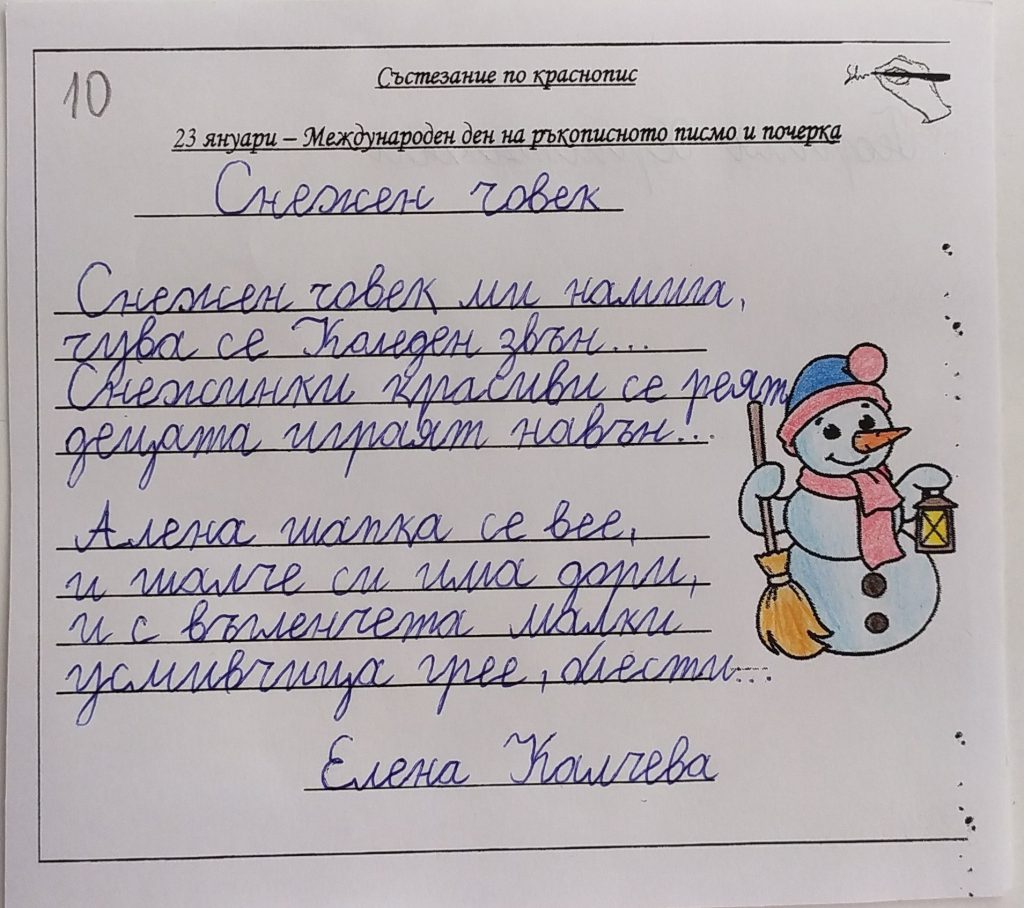 10
Състезание по краснопис
23 януари – Международен ден на ръкописното писмо и почерка
Снежен човек
Снежен човек ми намига,
чува се Коледен звън...
Снежинки красиви се реят
децата играят навън...
Алена шапка се вее,
и шалче си има дори,
и с въгленчета малки
усмивчица грее, блести...
Елена Калчева